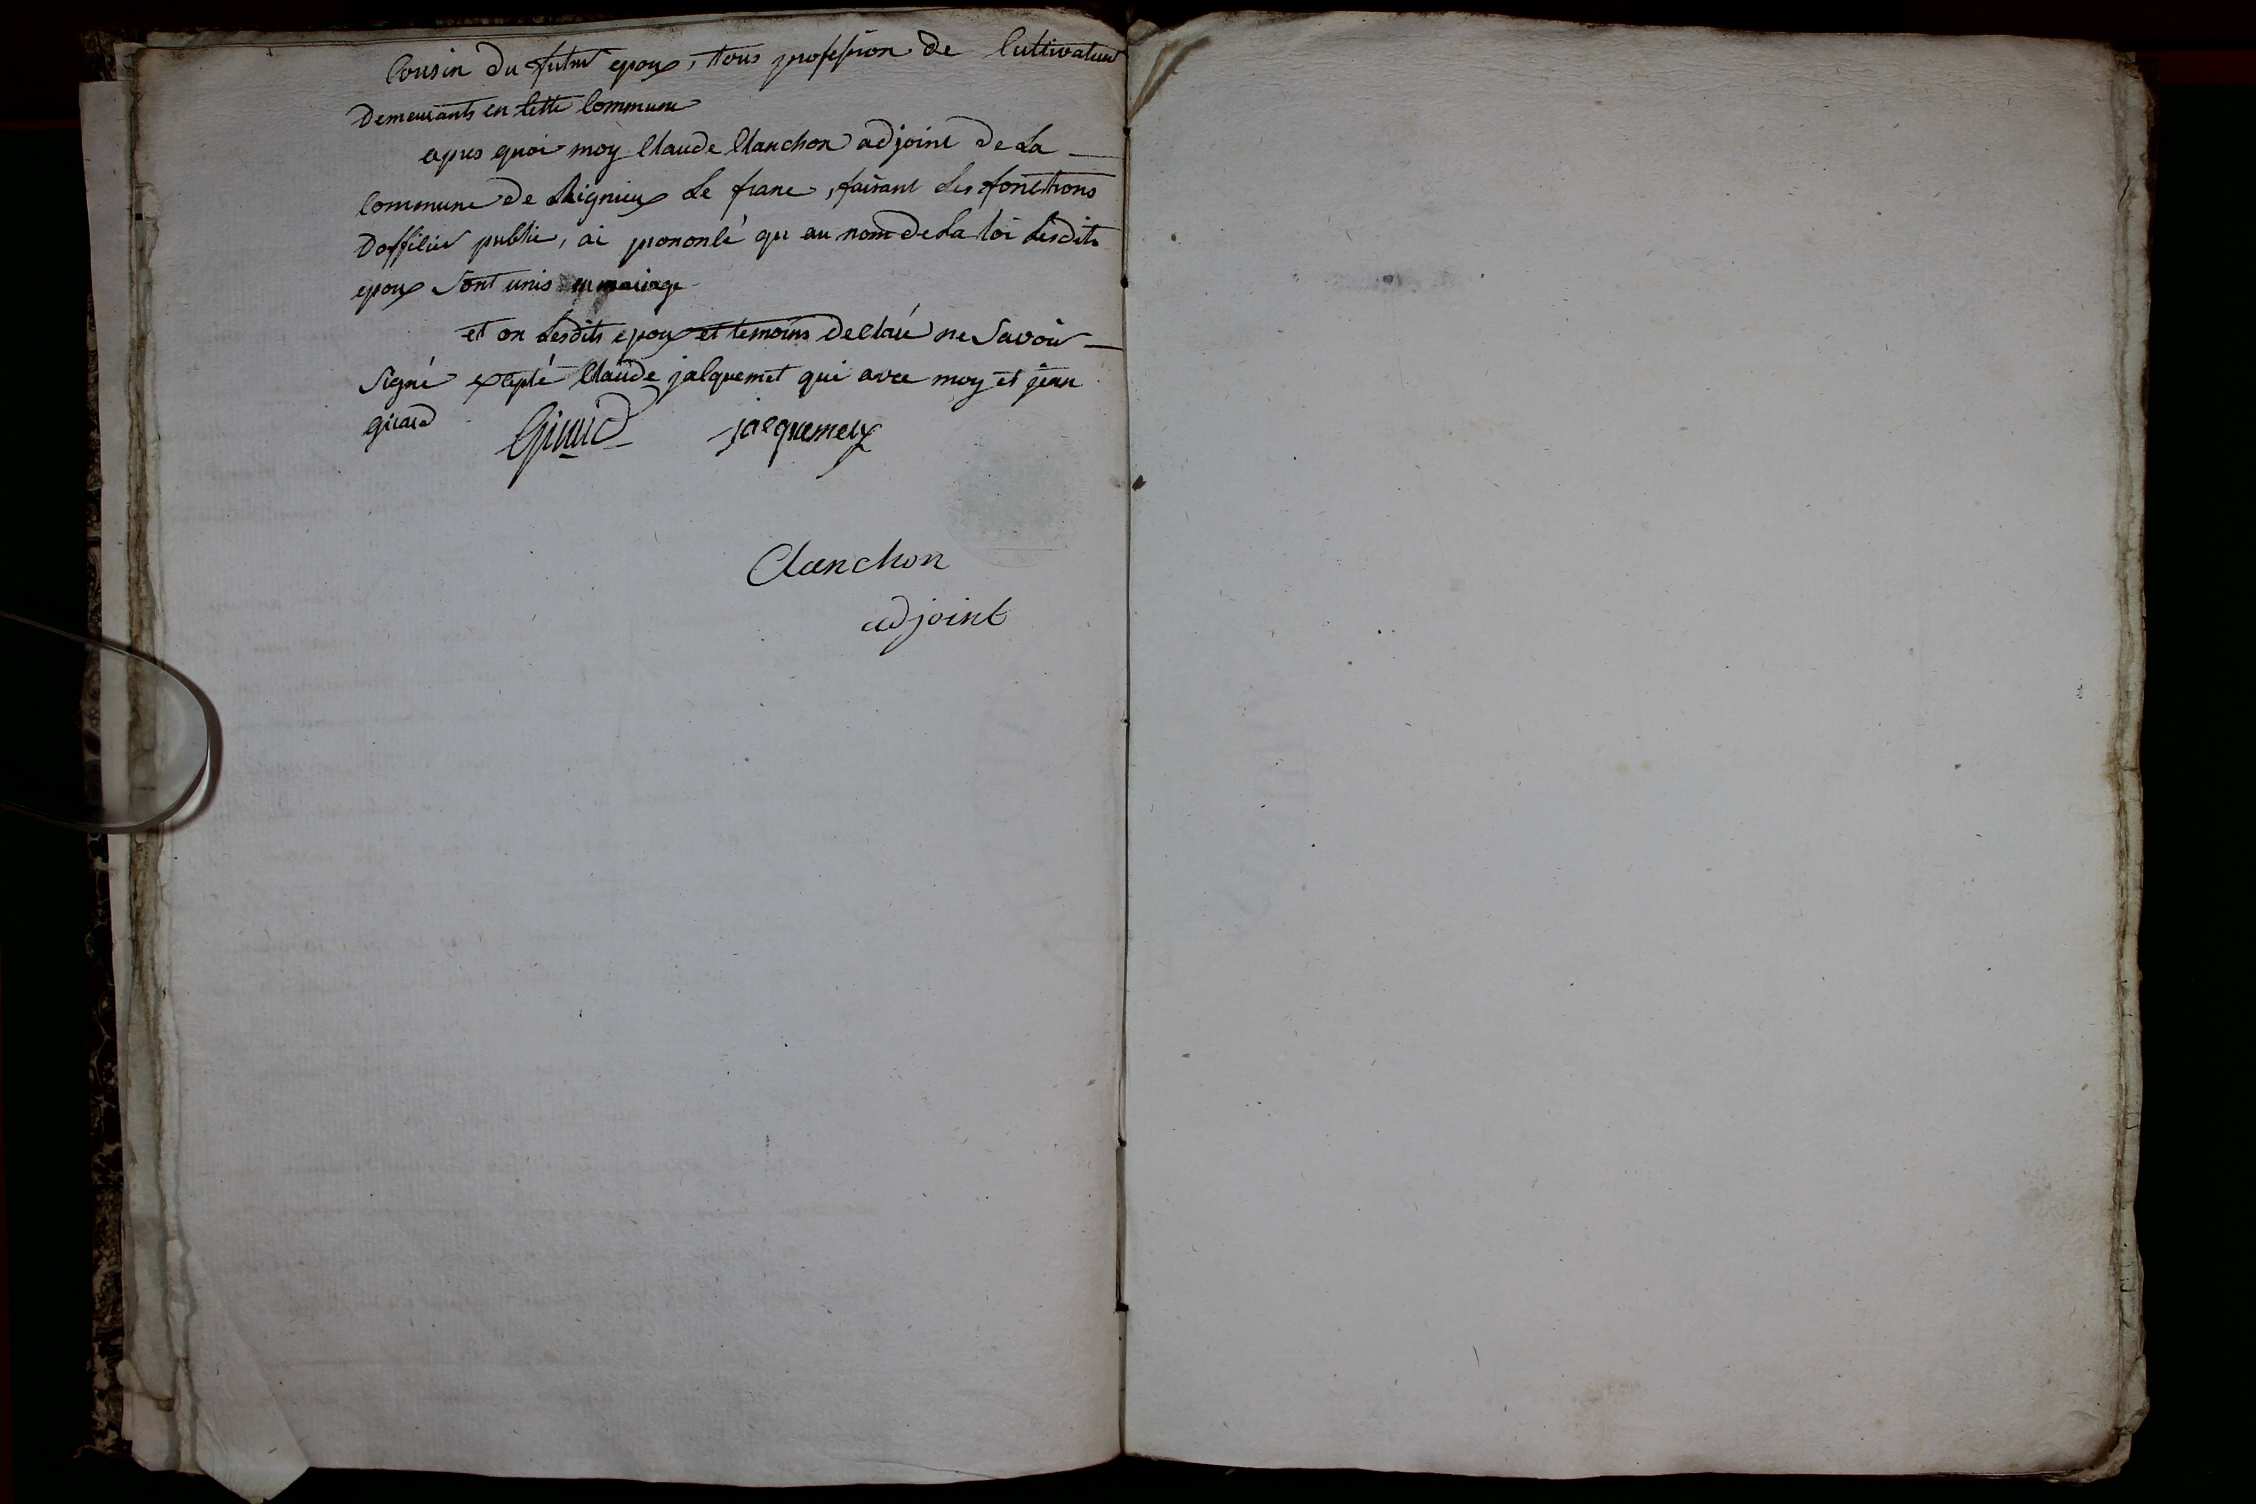 Cousin du futur epoux, tous profession de Cultivateur
Demeurants en Cette Commune
apres quoi moy Claude Clanchon adjoint de La
Commune de Rignieux Le franc, faisant Les fonctions
Dofficier public, ai prononcé qu au nom de La loi Lesdits
epoux Sont unis en mariage
et on Lesdits epoux et temoins declaré ne Savoir
Signé excepté Claude jacquemet qui avec moy et jean
girard Girard jacquemet
Clanchon
adjoint